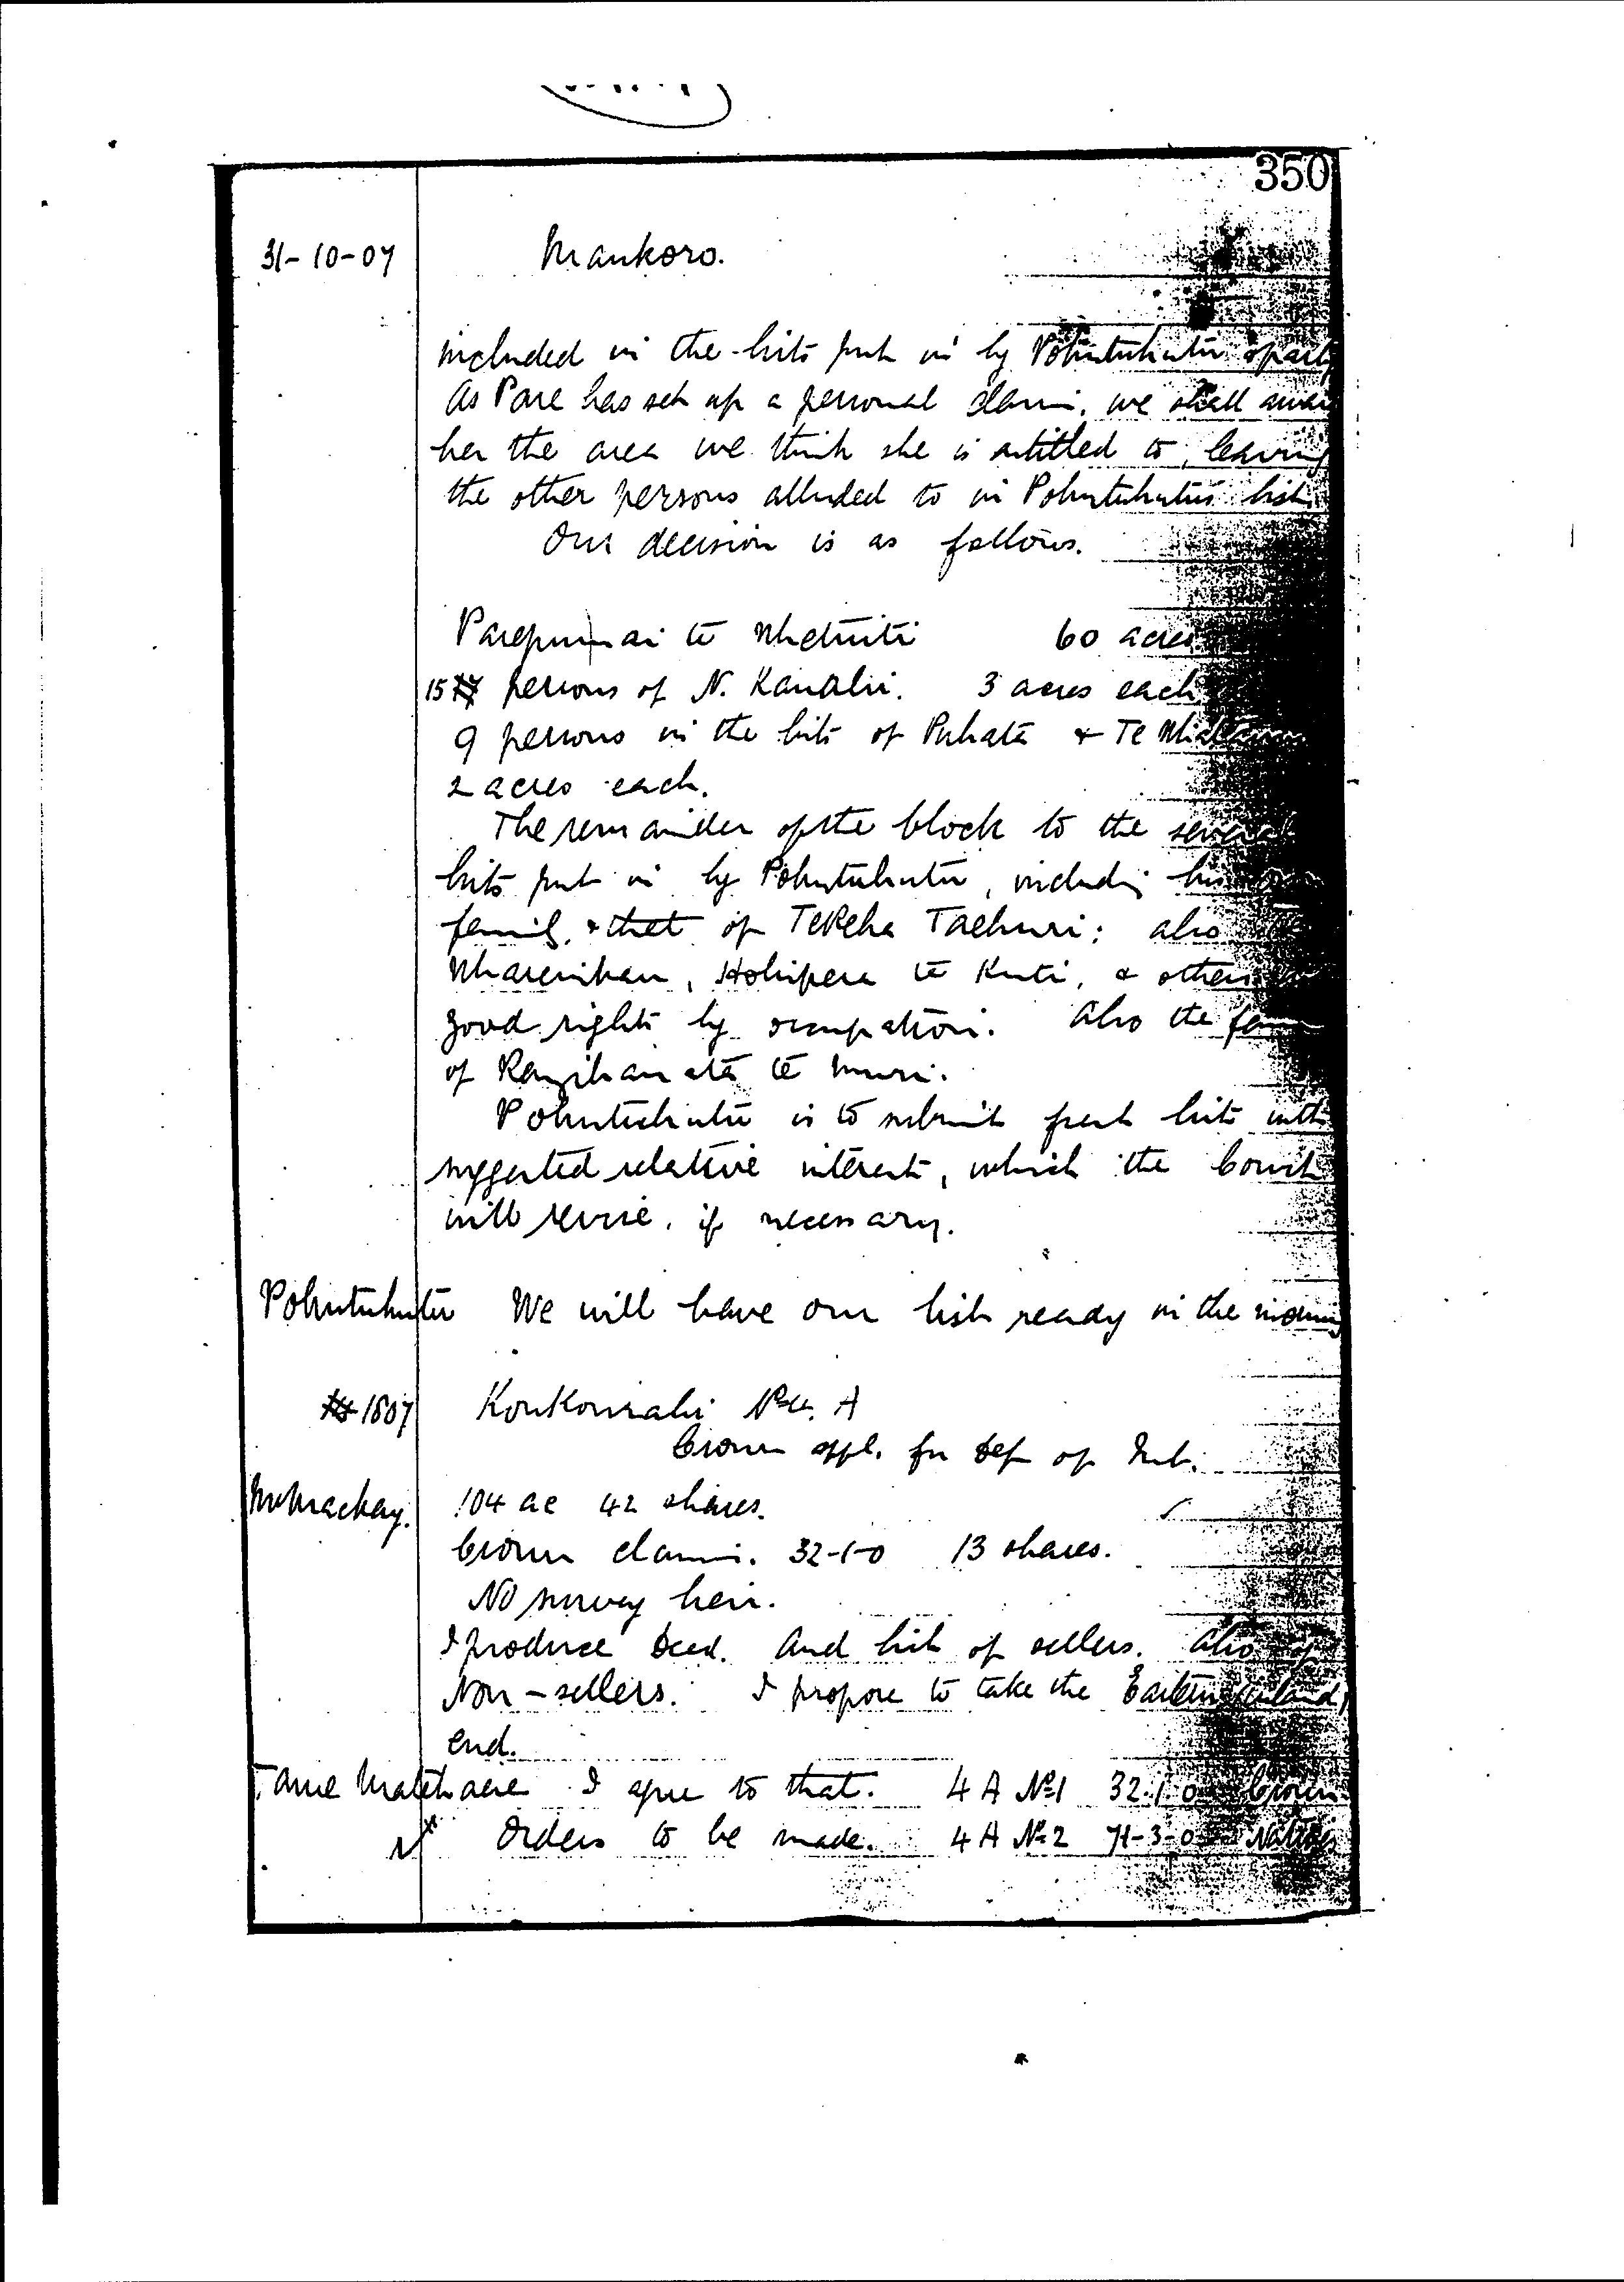 350
31-10-07 Maukoro.
included in the lists put in by Pohutuhutu & party
As Pare has set up a personal claim, we shall award
her the area we think she is entitled to, leaving
the other persons alluded to in Pohutuhutu's list.
Our decision is as follows.
Parepumai te Whetuiti 60 acres
15 persons of N. Kauahi. 3 acres each
9 persons in the lists of Puhata & Te
2 acres each.
The remainder of the block to the several
lists put in by Pohutuhutu, including his
family, & that of TeReha Taehuri: also
Wharenikau, Hohipera te Kuti, & others
good rights by occupation. Also the
of te Muri.
Pohutuhutu is to submit fresh lists with
suggested relative interests, which the Court
will revise, if necessary.
Pohutuhutu We will have our list ready in the morning
1807 Koukourahi No 4. A
Crown appl. for Def of Int.
Mr Mackay. 104 ac 42 shares.
Crown claims. 32-1-0 13 shares.
No survey lien.
I produce Deed. And list of sellers. Also of
Non-sellers. I propose to take the Eastern (inland)
end.
I agree to that. 4 A No 1 32-1-0 Crown
Orders to be made. 4 A No 2 71-3-0 Natives